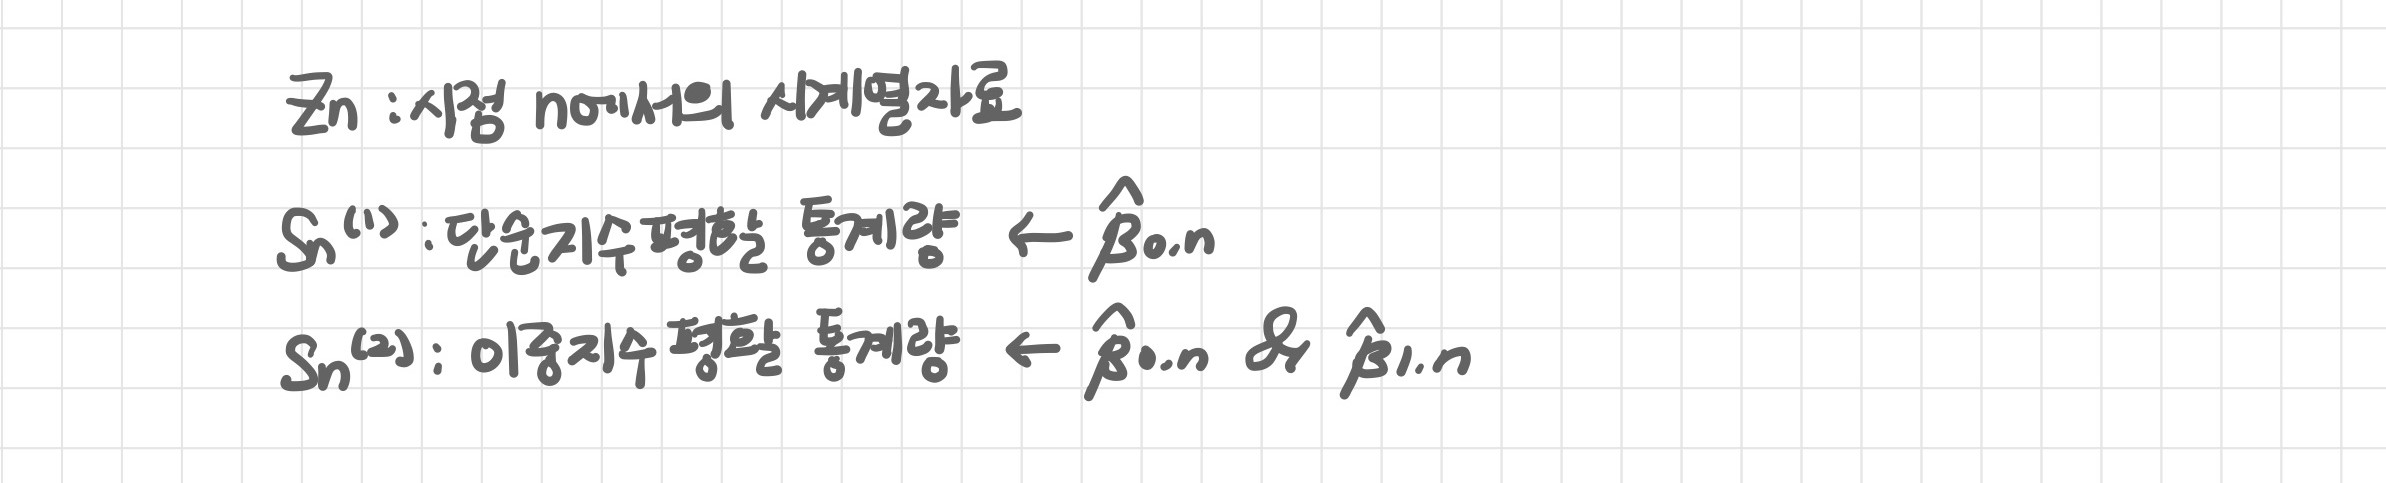 Zn : 시점 n에서의 시계열자료
Sn⁽¹⁾ : 단순지수평활 통계량 ← β̂0,n
Sn⁽²⁾ : 이중지수평활 통계량 ← β̂0,n & β̂1,n